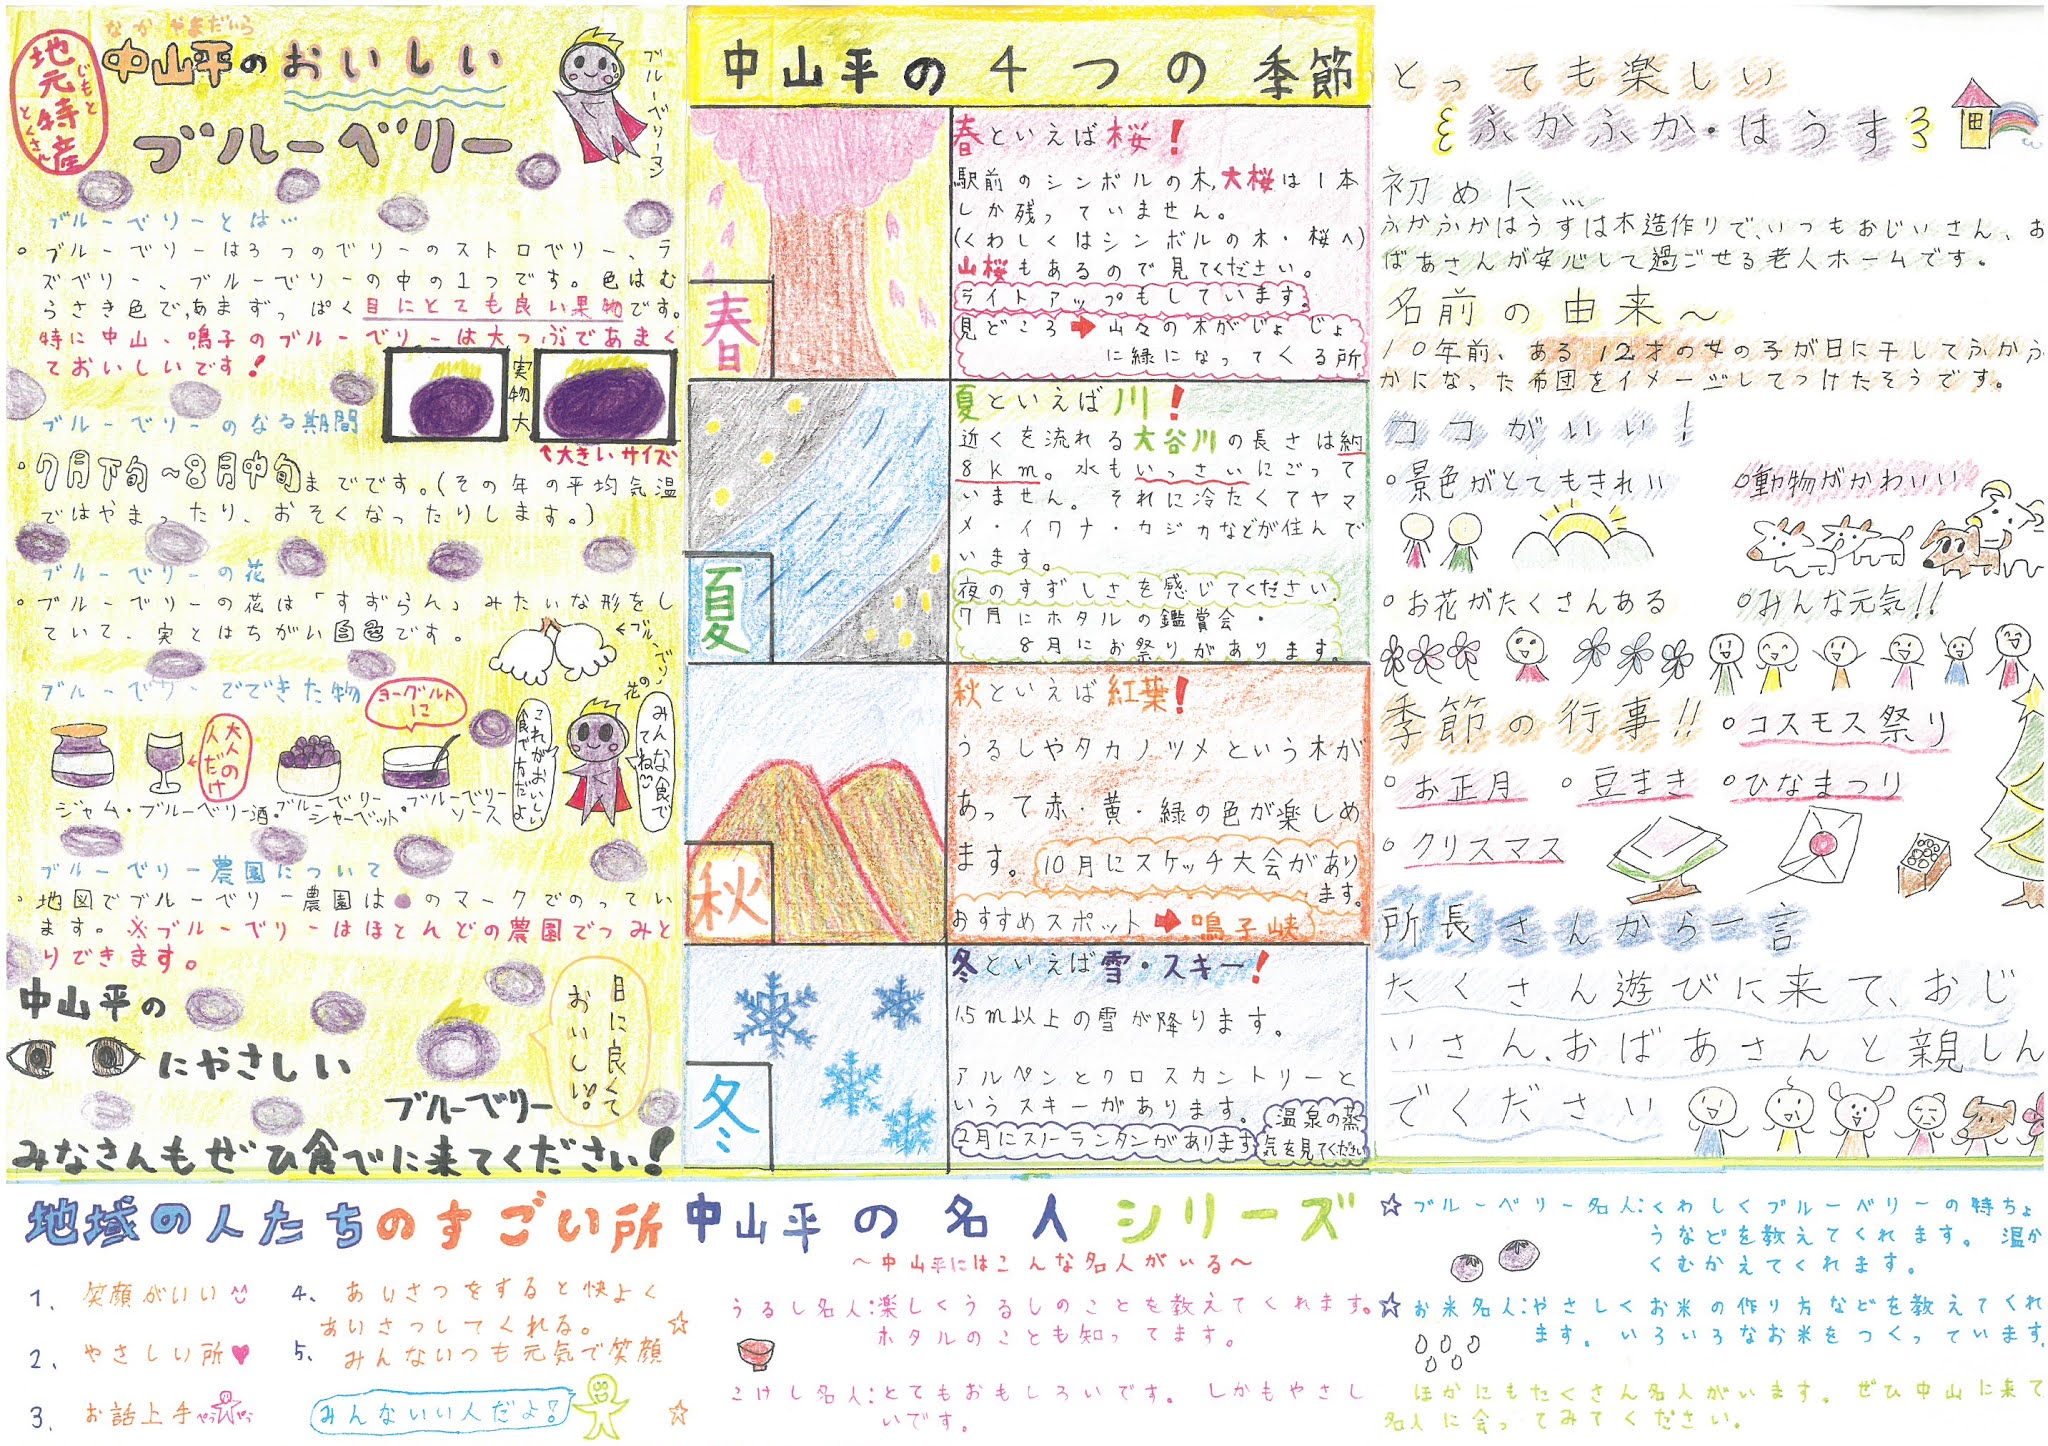 なかやまだいら
地元特産
じもと
とくさん
中山平のおいしい
ブルーベリー
ブルーベリーマン
ブルーベリーとは…
◦ブルーベリーは3つのベリーのストロベリー、ラ
ズベリー、ブルーベリーの中の1つです。色はむ
らさき色で、あまずっぱく目にとても良い果物です。
特に中山、鳴子のブルーベリーは大つぶであまく
ておいしいです!
実物大
↑大きいサイズ
ブルーベリーのなる期間
・7月下旬~8月中旬までです。(その年の平均気温
ではやまったり、おそくなったりします。)
ブルーベリーの花
◦ブルーベリーの花は「すずらん」みたいな形をし
ていて、実とはちがい白色です。
←ブルーベリーの花
ブルーベリーでできた物
ヨーグルトに
大人の人だけ
これがおいしい食べ方だよ
みんな食べてね
ジャム・ブルーベリー酒・ブルーベリーシャーベット・ブルーベリーソース
ブルーベリー農園について
・地図でブルーベリー農園は●のマークでのってい
ます。※ブルーベリーはほとんどの農園でつみと
りできます。
中山平の
にやさしい
ブルーベリー
目に良くておいしい!
みなさんもぜひ食べに来てください!
中山平の4つの季節
春
春といえば桜!
駅前のシンボルの木、大桜は1本
しか残っていません。
(くわしくはシンボルの木・桜へ)
山桜もあるので見てください。
ライトアップもしています。
見どころ➡山々の木がじょじょ
に緑になってくる所
夏
夏といえば川!
近くを流れる大谷川の長さは約
8km。水もいっさいにごって
いません。それに冷たくてヤマ
メ・イワナ・カジカなどが住んで
います。
夜のすずしさを感じてください。
7月にホタルの鑑賞会・
8月にお祭りがあります。
秋
秋といえば紅葉!
うるしやタカノツメという木が
あって赤・黄・緑の色が楽しめ
ます。10月にスケッチ大会があり
ます。
おすすめスポット➡鳴子峡
冬
冬といえば雪・スキー!
1.5m以上の雪が降ります。
アルペンとクロスカントリーと
いうスキーがあります。
2月にスノーランタンがあります
温泉の蒸
気を見てください
とっても楽しい
ふかふか・はうす
初めに…
ふかふかはうすは木造作りで、いつもおじいさん、お
ばあさんが安心して過ごせる老人ホームです。
名前の由来~
10年前、ある12才の女の子が日に干してふかふ
かになった布団をイメージしてつけたそうです。
ココがいい!
◦景色がとてもきれい
◦動物がかわいい
◦お花がたくさんある
◦みんな元気!!
季節の行事!!
◦コスモス祭り
◦お正月
◦豆まき
◦ひなまつり
◦クリスマス
所長さんから一言
たくさん遊びに来て、おじ
いさん、おばあさんと親しん
でください
地域の人たちのすごい所
1、笑顔がいい
2、やさしい所♥
3、お話上手
4、あいさつをすると快よく
あいさつしてくれる。☆
5、みんないつも元気で笑顔
みんないい人だよ!
☆
中山平の名人シリーズ
~中山平にはこんな名人がいる~
うるし名人:楽しくうるしのことを教えてくれます。
ホタルのことも知ってます。
こけし名人:とてもおもしろいです。しかもやさし
いです。
☆ブルーベリー名人:くわしくブルーベリーの特ちょ
うなどを教えてくれます。温か
くむかえてくれます。
☆お米名人:やさしくお米の作り方などを教えてくれ
ます。いろいろなお米をつくっています
ほかにもたくさん名人がいます。ぜひ中山に来て
名人に会ってみてください。